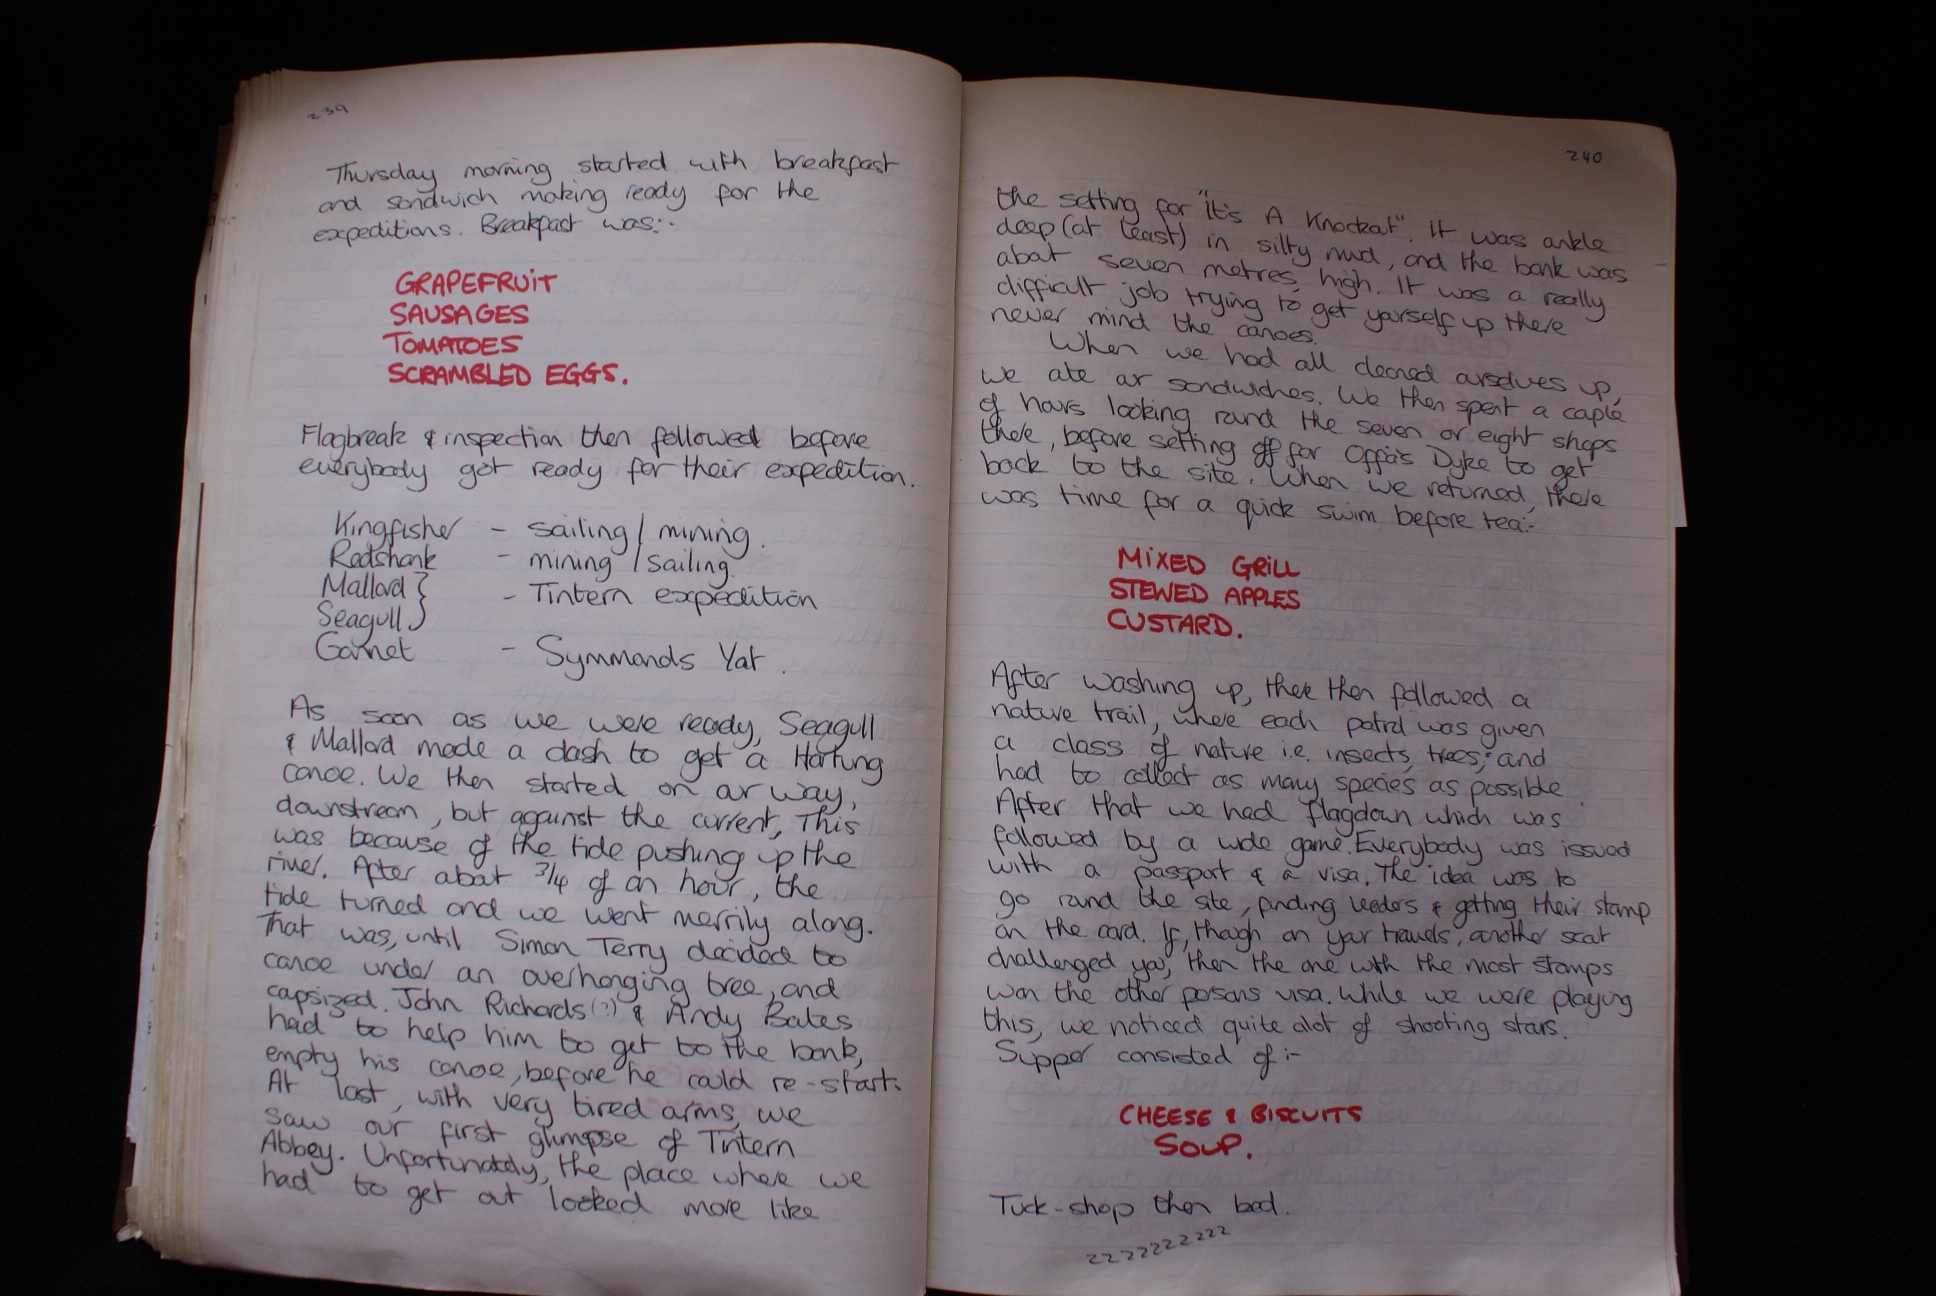 239
Thursday morning started with breakfast
and sandwich making ready for the
expeditions. Breakfast was:-
GRAPEFRUIT
SAUSAGES
TOMATOES
SCRAMBLED EGGS.
Flagbreak & inspection then followed before
everybody got ready for their expedition.
Kingfisher - sailing / mining.
Redshank - mining / sailing.
Mallard }
Seagull } - Tintern expedition
Gannet - Symmonds Yat.
As soon as we were ready, Seagull
& Mallard made a dash to get a Hartung
canoe. We then started on our way,
downstream, but against the current, This
was because of the tide pushing up the
river. After about 3/4 of an hour, the
tide turned and we went merrily along.
That was, until Simon Terry decided to
canoe under an overhanging tree, and
capsized. John Richards (?) & Andy Bates
had to help him to get to the bank,
empty his canoe, before he could re-start.
At last, with very tired arms, we
saw our first glimpse of Tintern
Abbey. Unfortunately, the place where we
had to get out looked more like
240
the setting for "It's A Knockout". It was ankle
deep (at least) in silty mud, and the bank was
about seven metres high. It was a really
difficult job trying to get yourself up there
never mind the canoes.
When we had all cleaned ourselves up,
we ate our sandwiches. We then spent a couple
of hours looking round the seven or eight shops
there, before setting off for Offa's Dyke to get
back to the site. When we returned, there
was time for a quick swim before tea:-
MIXED GRILL
STEWED APPLES
CUSTARD.
After washing up, there then followed a
nature trail, where each patrol was given
a class of nature i.e. insects, trees; and
had to collect as many species as possible.
After that we had flagdown which was
followed by a wide game. Everybody was issued
with a passport & a visa. The idea was to
go round the site, finding leaders & getting their stamp
on the card. If, though on your travels, another scout
challenged you, then the one with the most stamps
won the other persons visa. While we were playing
this, we noticed quite alot of shooting stars.
Supper consisted of :-
CHEESE & BISCUITS
SOUP.
Tuck-shop then bed.
zzzzzzzzzz